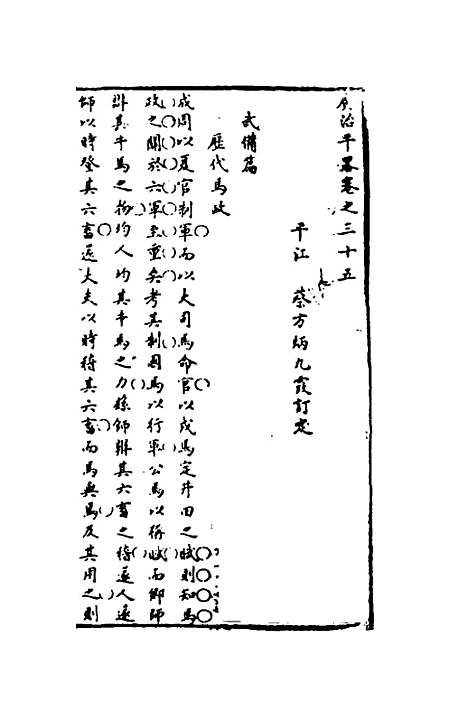 廣治平畧卷之三十五
平江 蔡方炳九霞訂定
武備篇
歷代馬政
成周以夏官制軍而以大司馬命官以戎馬定井田之賦則知馬
政之關於六軍至重矣考其制國馬以行軍公馬以稱賦而鄉師
辨其牛馬之物均人均其牛馬之力縣師辨其六畜之稽遂人遂
師以時登其六畜遂大夫以時稽其六畜而馬與馬及其用之則